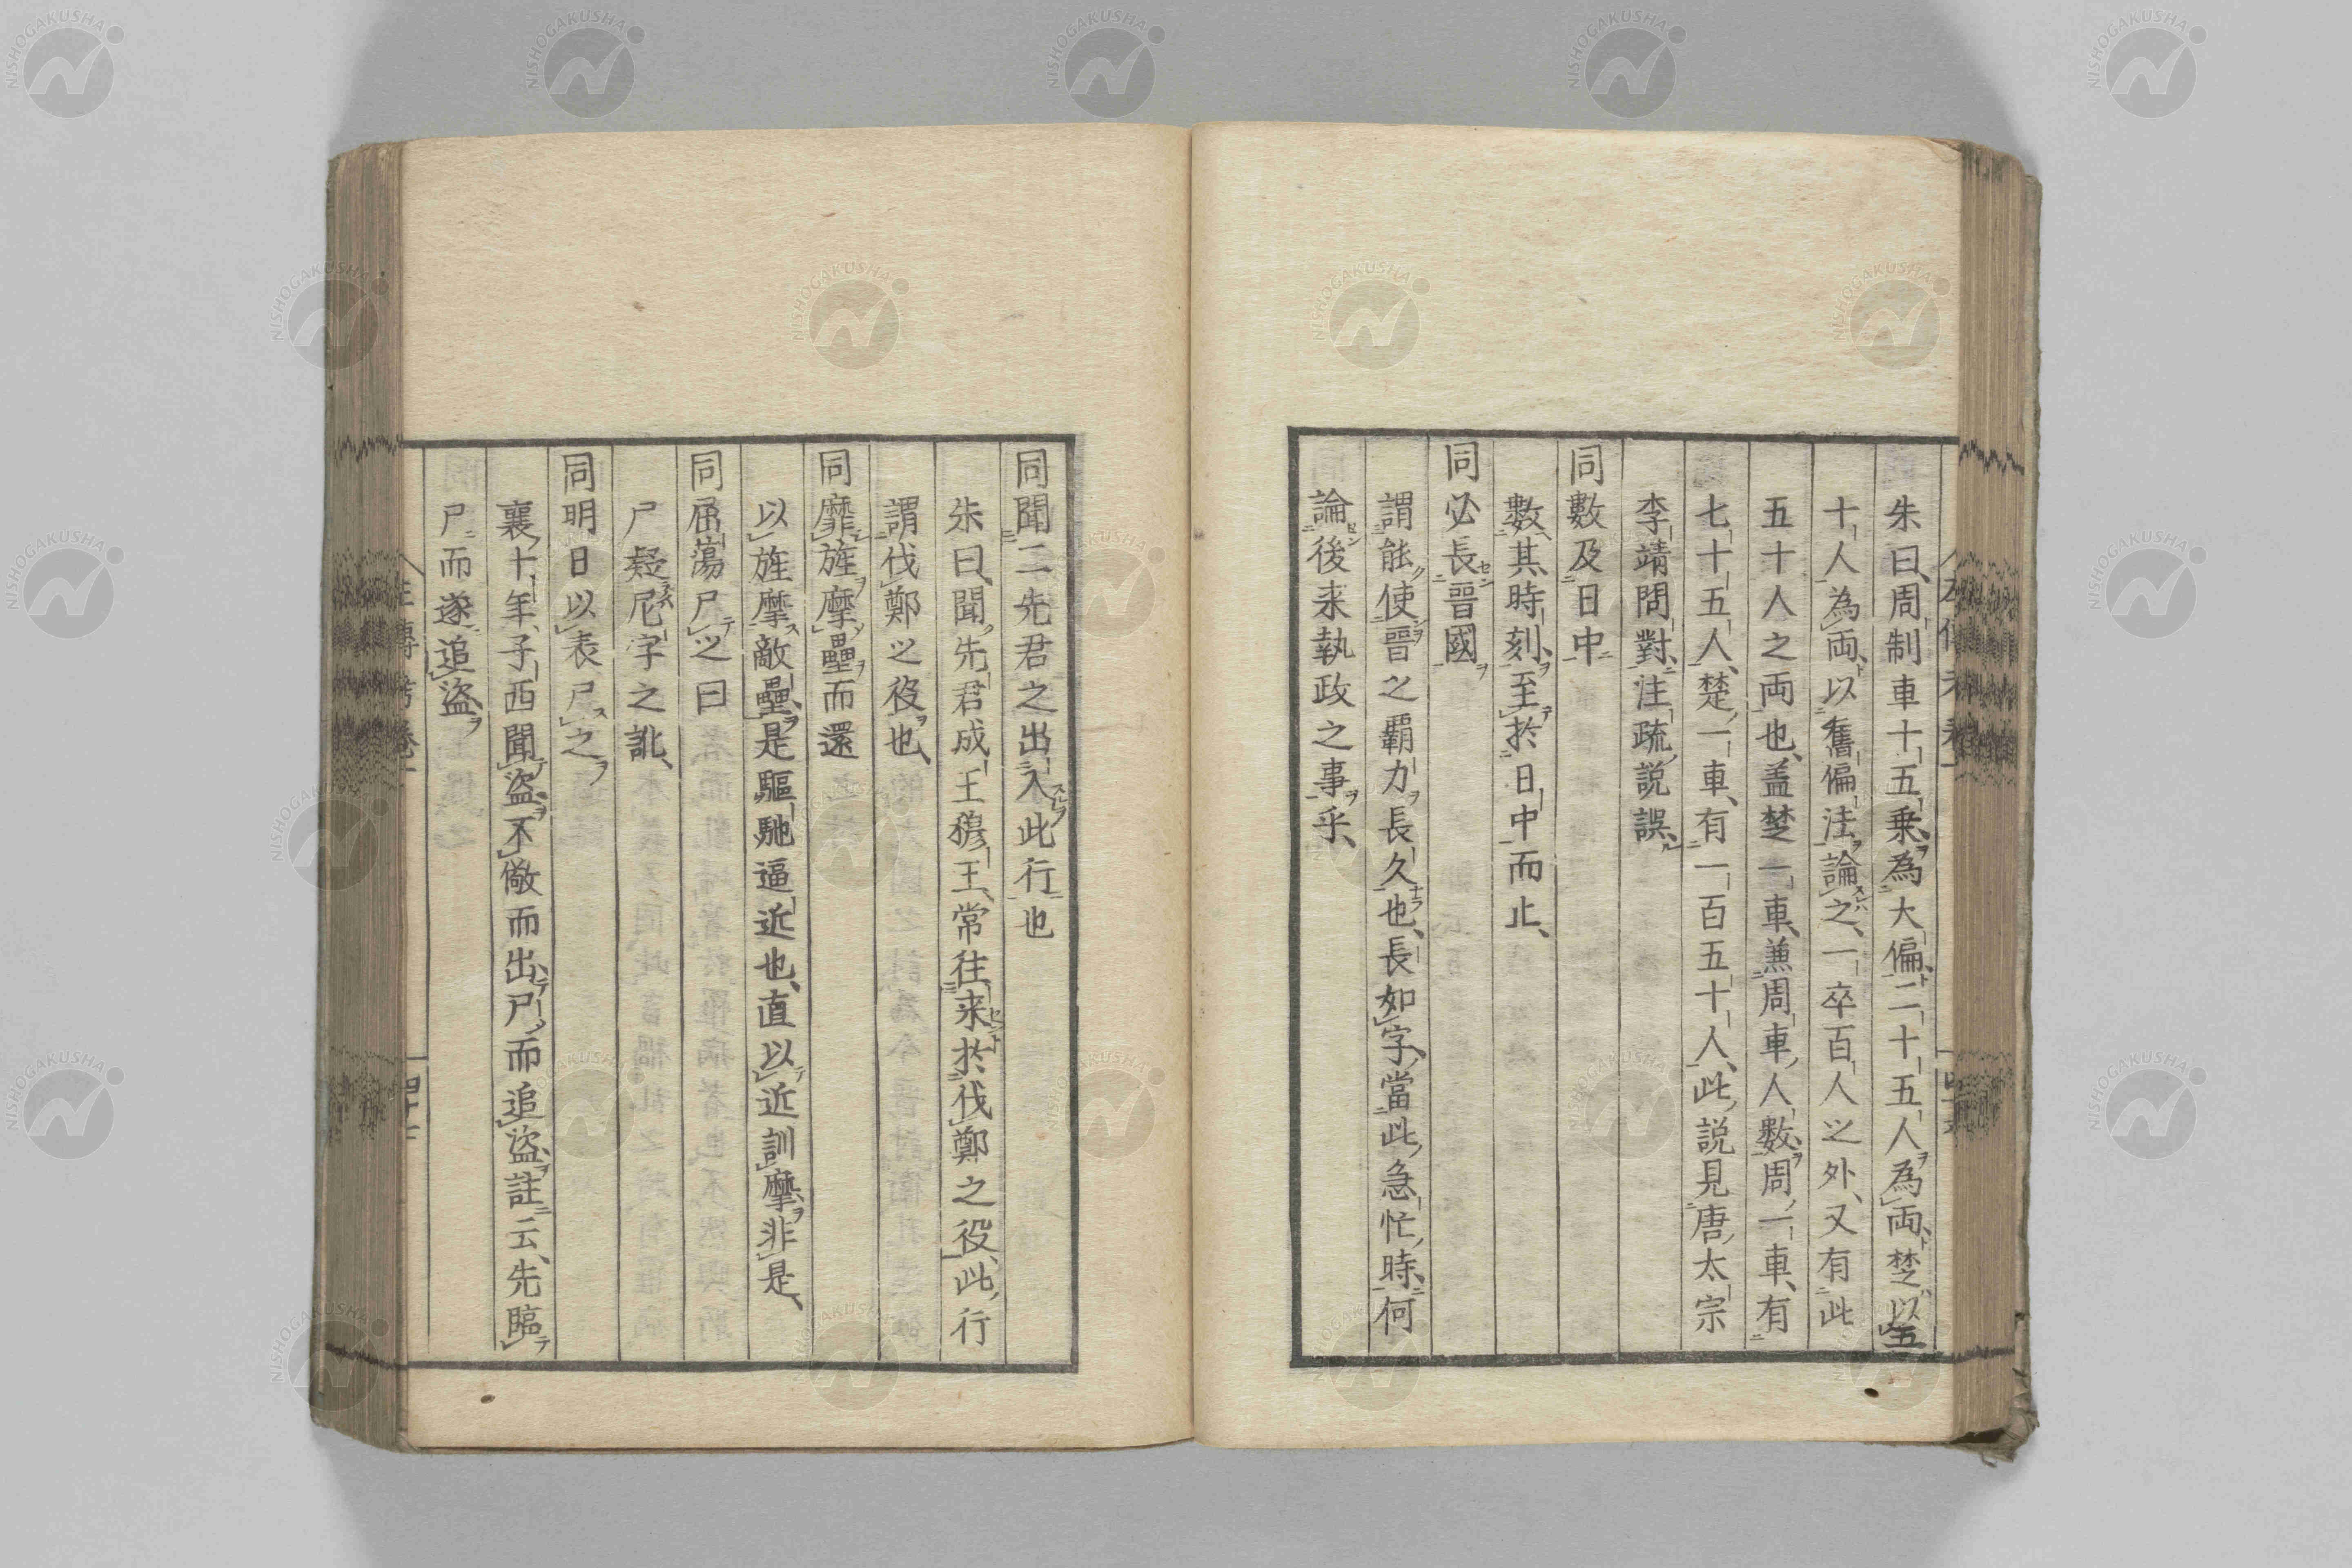 朱曰周制車十五乗為大偏二十五人為両楚以五
十人為両以舊偏法論之一卒百人之外又有此
五十人之両也盖楚一車兼周車人數周一車有
七十五人楚一車有一百五十人此説見唐太宗
李靖問對注疏説誤
同數及日中
數其時刻至於日中而止
同必長晉國
謂能使晉之覇力長久也長如字當此急忙時何
論後来執政之事乎
同聞二先君之出入此行也
朱曰聞先君成王穆王常往来於伐鄭之役此行
謂伐鄭之役也
同靡旌摩壘而還
以旌摩敵壘是驅馳逼近也直以近訓摩非是
同屈蕩尸之曰
尸疑尼字之訛
同明日以表尸之
襄十年子西聞盗不儆而出尸而追盗註云先臨
尸而遂追盗
NISHOGAKUSHA